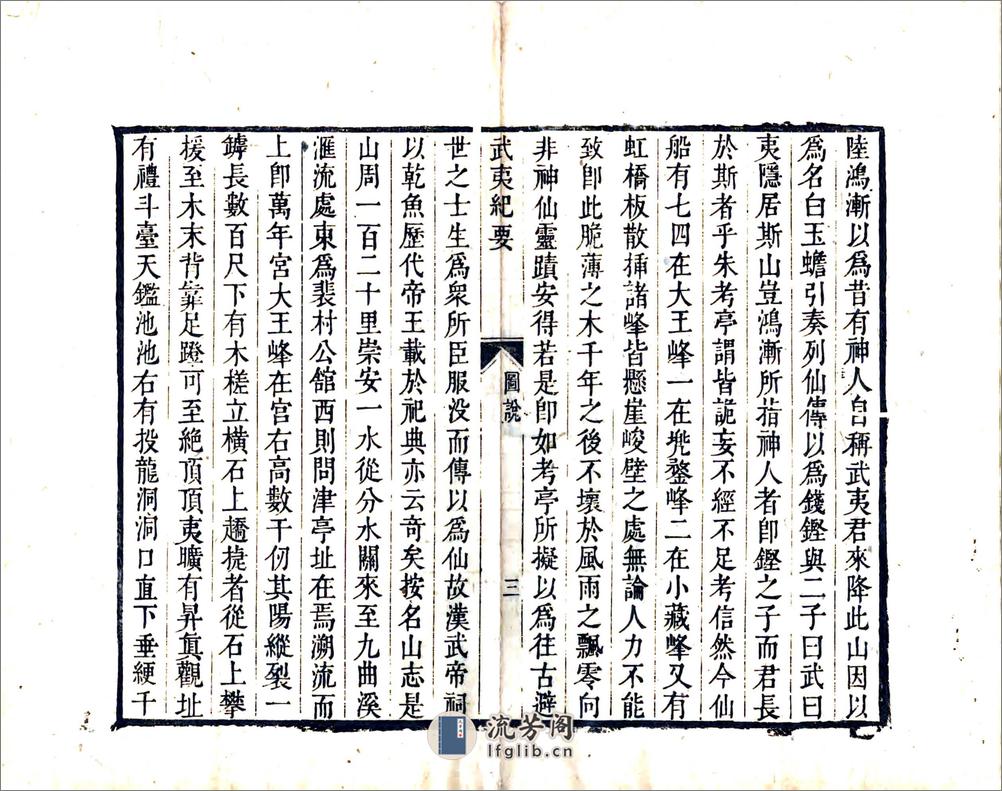 陸鴻漸以爲昔有神人自稱武夷君來降此山因以
爲名白玉蟾引奏列仙傳以爲錢鏗與二子曰武曰
夷隱居斯山豈鴻漸所指神人者卽鏗之子而君長
於斯者乎朱考亭謂皆詭妄不經不足考信然今仙
船有七四在大王峰一在兠鍪峰二在小藏峰又有
虹橋板散揷諸峰皆懸崖峻壁之處無論人力不能
致卽此脆薄之木千年之後不壞於風雨之飄零向
非神仙靈蹟安得若是卽如考亭所擬以爲往古避
武夷紀要
圖說
三
世之士生爲衆所臣服没而傳以爲仙故漢武帝祠
以乾魚歷代帝王載於祀典亦云奇矣按名山志是
山周一百二十里崇安一水從分水關來至九曲溪
滙流處東爲裴村公館西則問津亭址在焉溯流而
上卽萬年宮大王峰在宮右高數千仞其陽縱裂一
罅長數百尺下有木槎立横石上趫捷者從石上攀
援至木末背靠足蹬可至絶頂頂夷曠有昇眞觀址
有禮斗臺天鑑池池右有投龍洞洞口直下垂綆千
流芳阁
lfglib.cn